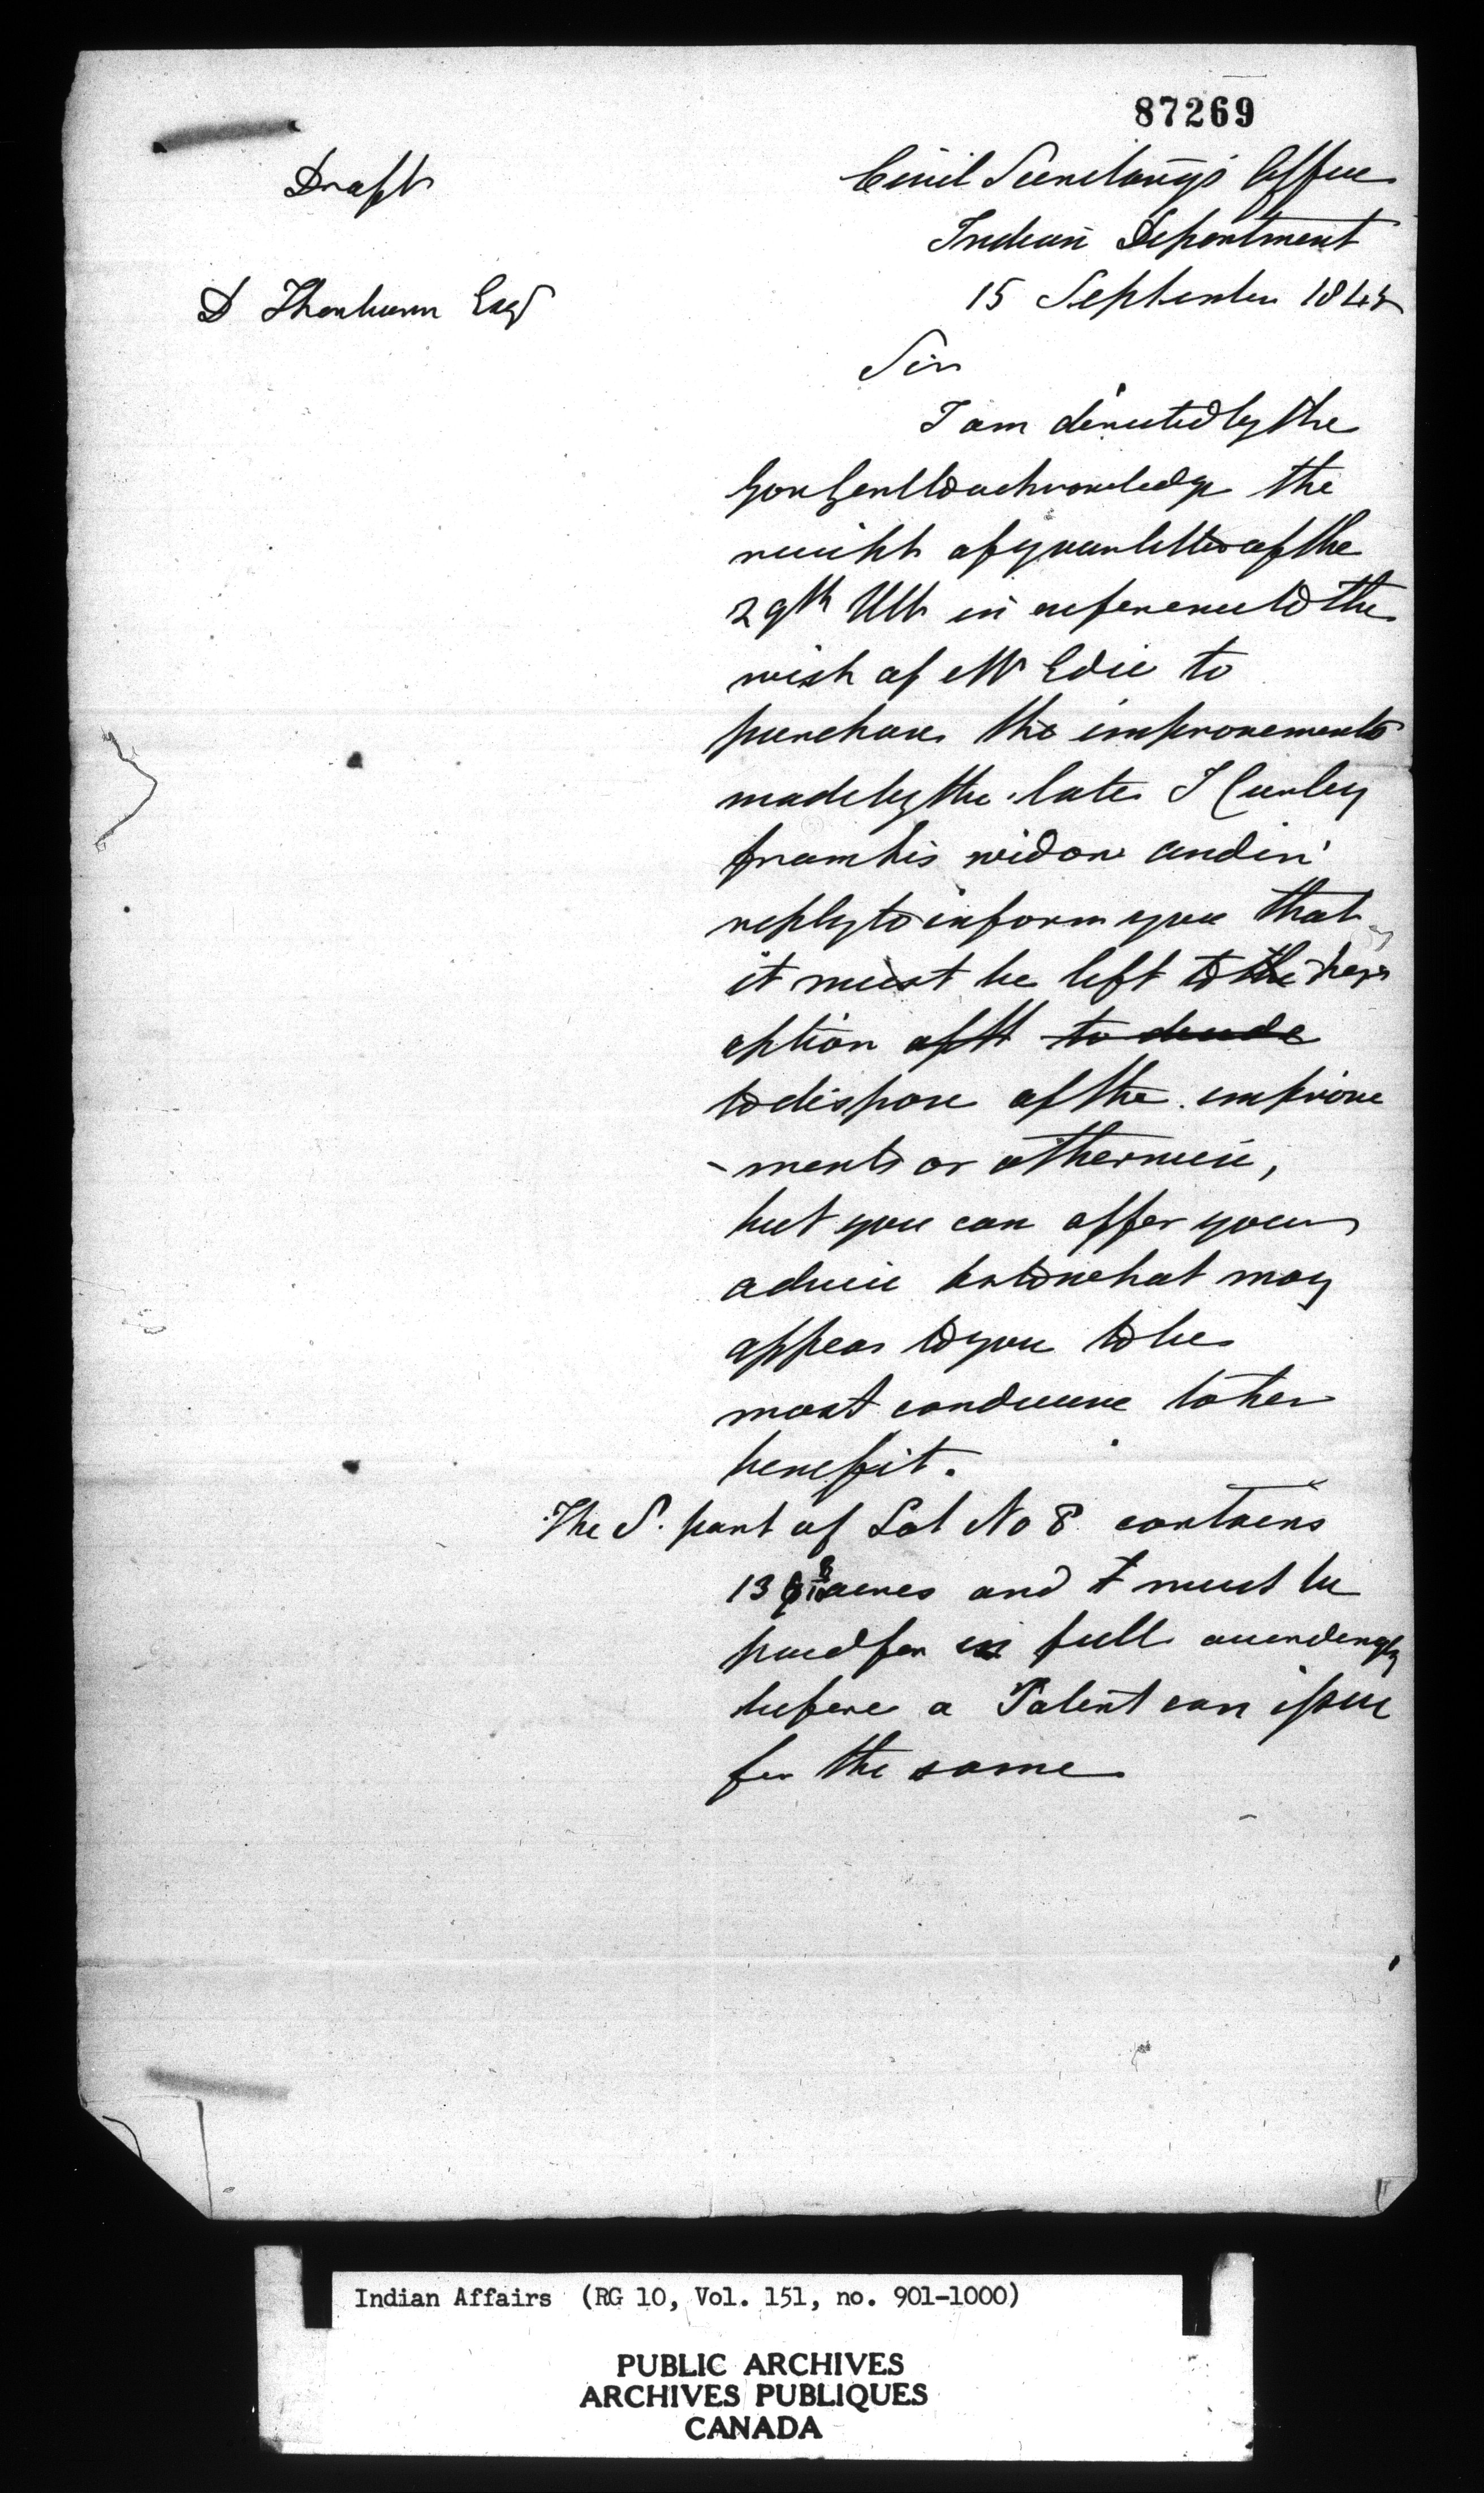 87269
Draft
Civil Secretary's Office
Indian Department
15 September 184
D Thorburn Esq
Sir
I am directed by the
Gov Genl to acknowledge the
receipt of your letter of the
29th Ult in reference to the
wish of Mr Edie to
purchase the improvements
made by the late J Curley
from his widow and in
reply to inform you that
it must be left to the her
option of to decide
to dispose of the improve
-ments or otherwise,
but you can offer your
advice as to what may
appear to you to be
most conducive to her
benefit.
The S. part of Lot No 8 contains
13 acres and it must be
paid for in full accordingly
before a Patent can issue
for the same
Indian Affairs (RG 10, Vol. 151, no. 901-1000)
PUBLIC ARCHIVES
ARCHIVES PUBLIQUES
CANADA